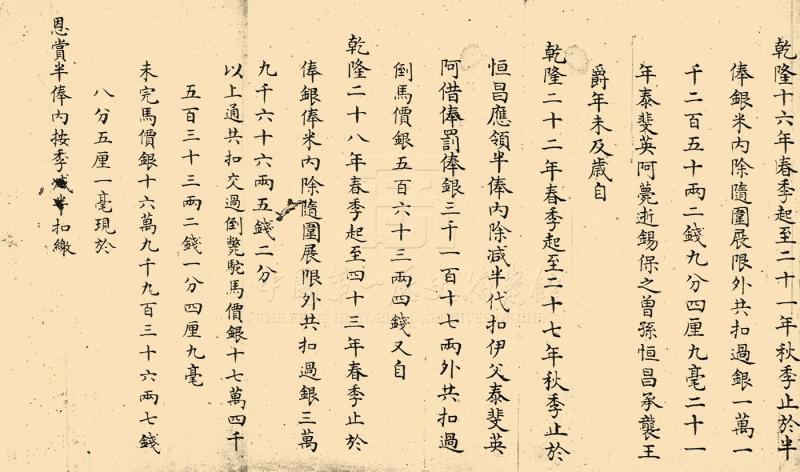 乾隆十六年春季起至二十一年秋季止於半
俸銀米內除隨圍展限外共扣過銀一萬一
千二百五十兩二錢九分四厘九毫二十一
年泰斐英阿薨逝錫保之曾孫恒昌承襲王
爵年未及歲自
乾隆二十二年春季起至二十七年秋季止於
恒昌應領半俸內除減半代扣伊父泰斐英
阿借俸罰俸銀三千一百十七兩外共扣過
倒馬價銀五百六十三兩四錢又自
乾隆二十八年春季起至四十三年春季止於
俸銀俸米內除隨圍展限外共扣過銀三萬
九千六十六兩五錢二分
以上通共扣交過倒斃駝馬價銀十七萬四千
五百三十三兩二錢一分四厘九毫
未完馬價銀十六萬九千九百三十六兩七錢
八分五厘一毫現於
恩賞半俸內按季減半扣繳